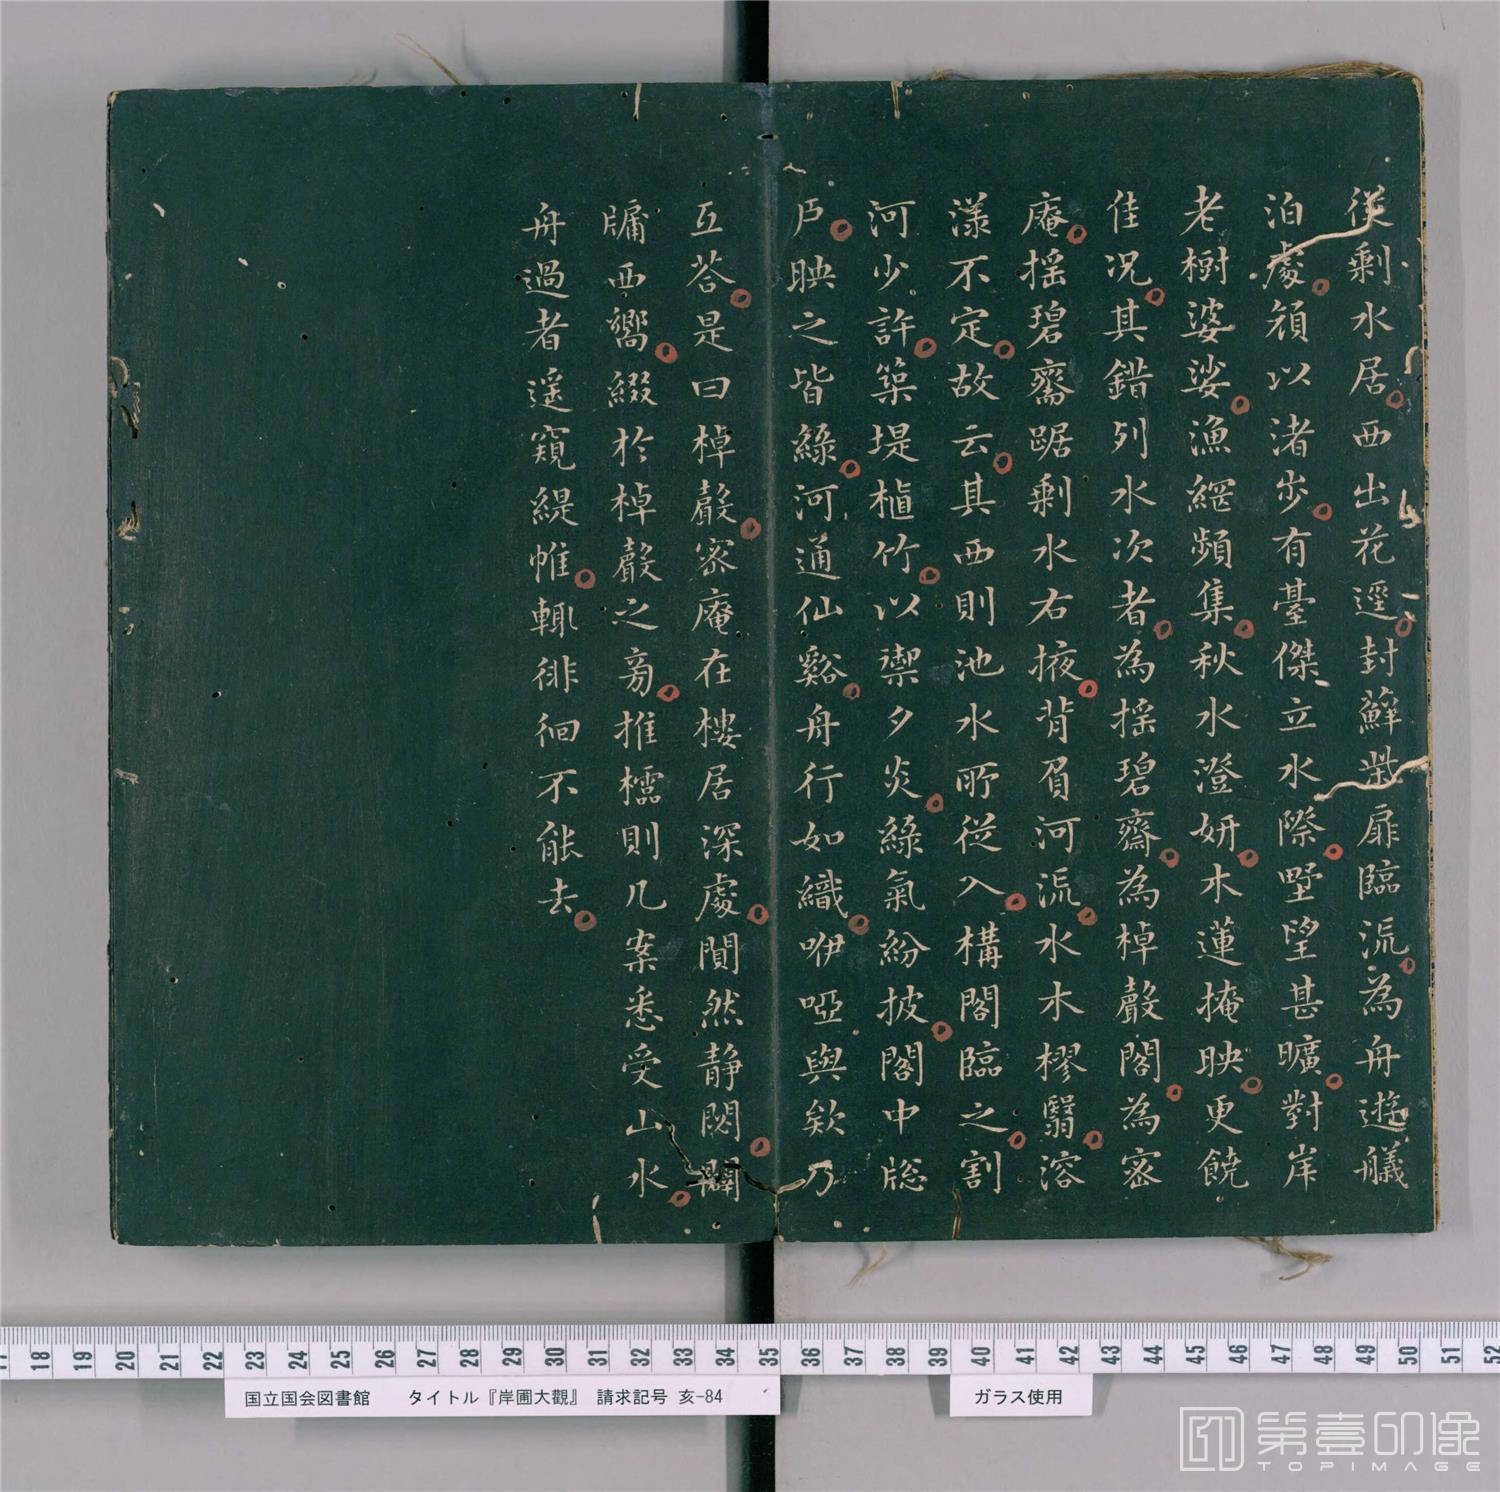 從剩水居西出花逕封蘚柴扉臨流為舟遊艤
泊處頎以渚步有臺傑立水際墅望甚曠對岸
老樹婆娑漁網頻集秋水澄妍木蓮掩映更饒
佳况其錯列水次者為摇碧齋為棹聲閣為密
庵摇碧齋踞剩水右掖背眉河流水木樛翳溶
漾不定故云其西則池水所從入構閣臨之割
河少許築堤植竹以禦夕炎綠氣紛披閣中牎
戶映之皆綠河通仙谿舟行如織咿啞與欸乃
互荅是曰棹聲密庵在樓居深處闃然静閟闢
牖西嚮綴於棹聲之旁推櫺則几案悉受山水
舟過者遥窺緹帷輒徘徊不能去
国立国会図書館 タイトル『岸圃大觀』 請求記号 亥-84
ガラス使用
17 18 19 20 21 22 23 24 25 26 27 28 29 30 31 32 33 34 35 36 37 38 39 40 41 42 43 44 45 46 47 48 49 50 51 52
第壹印像
TOPIMAGE